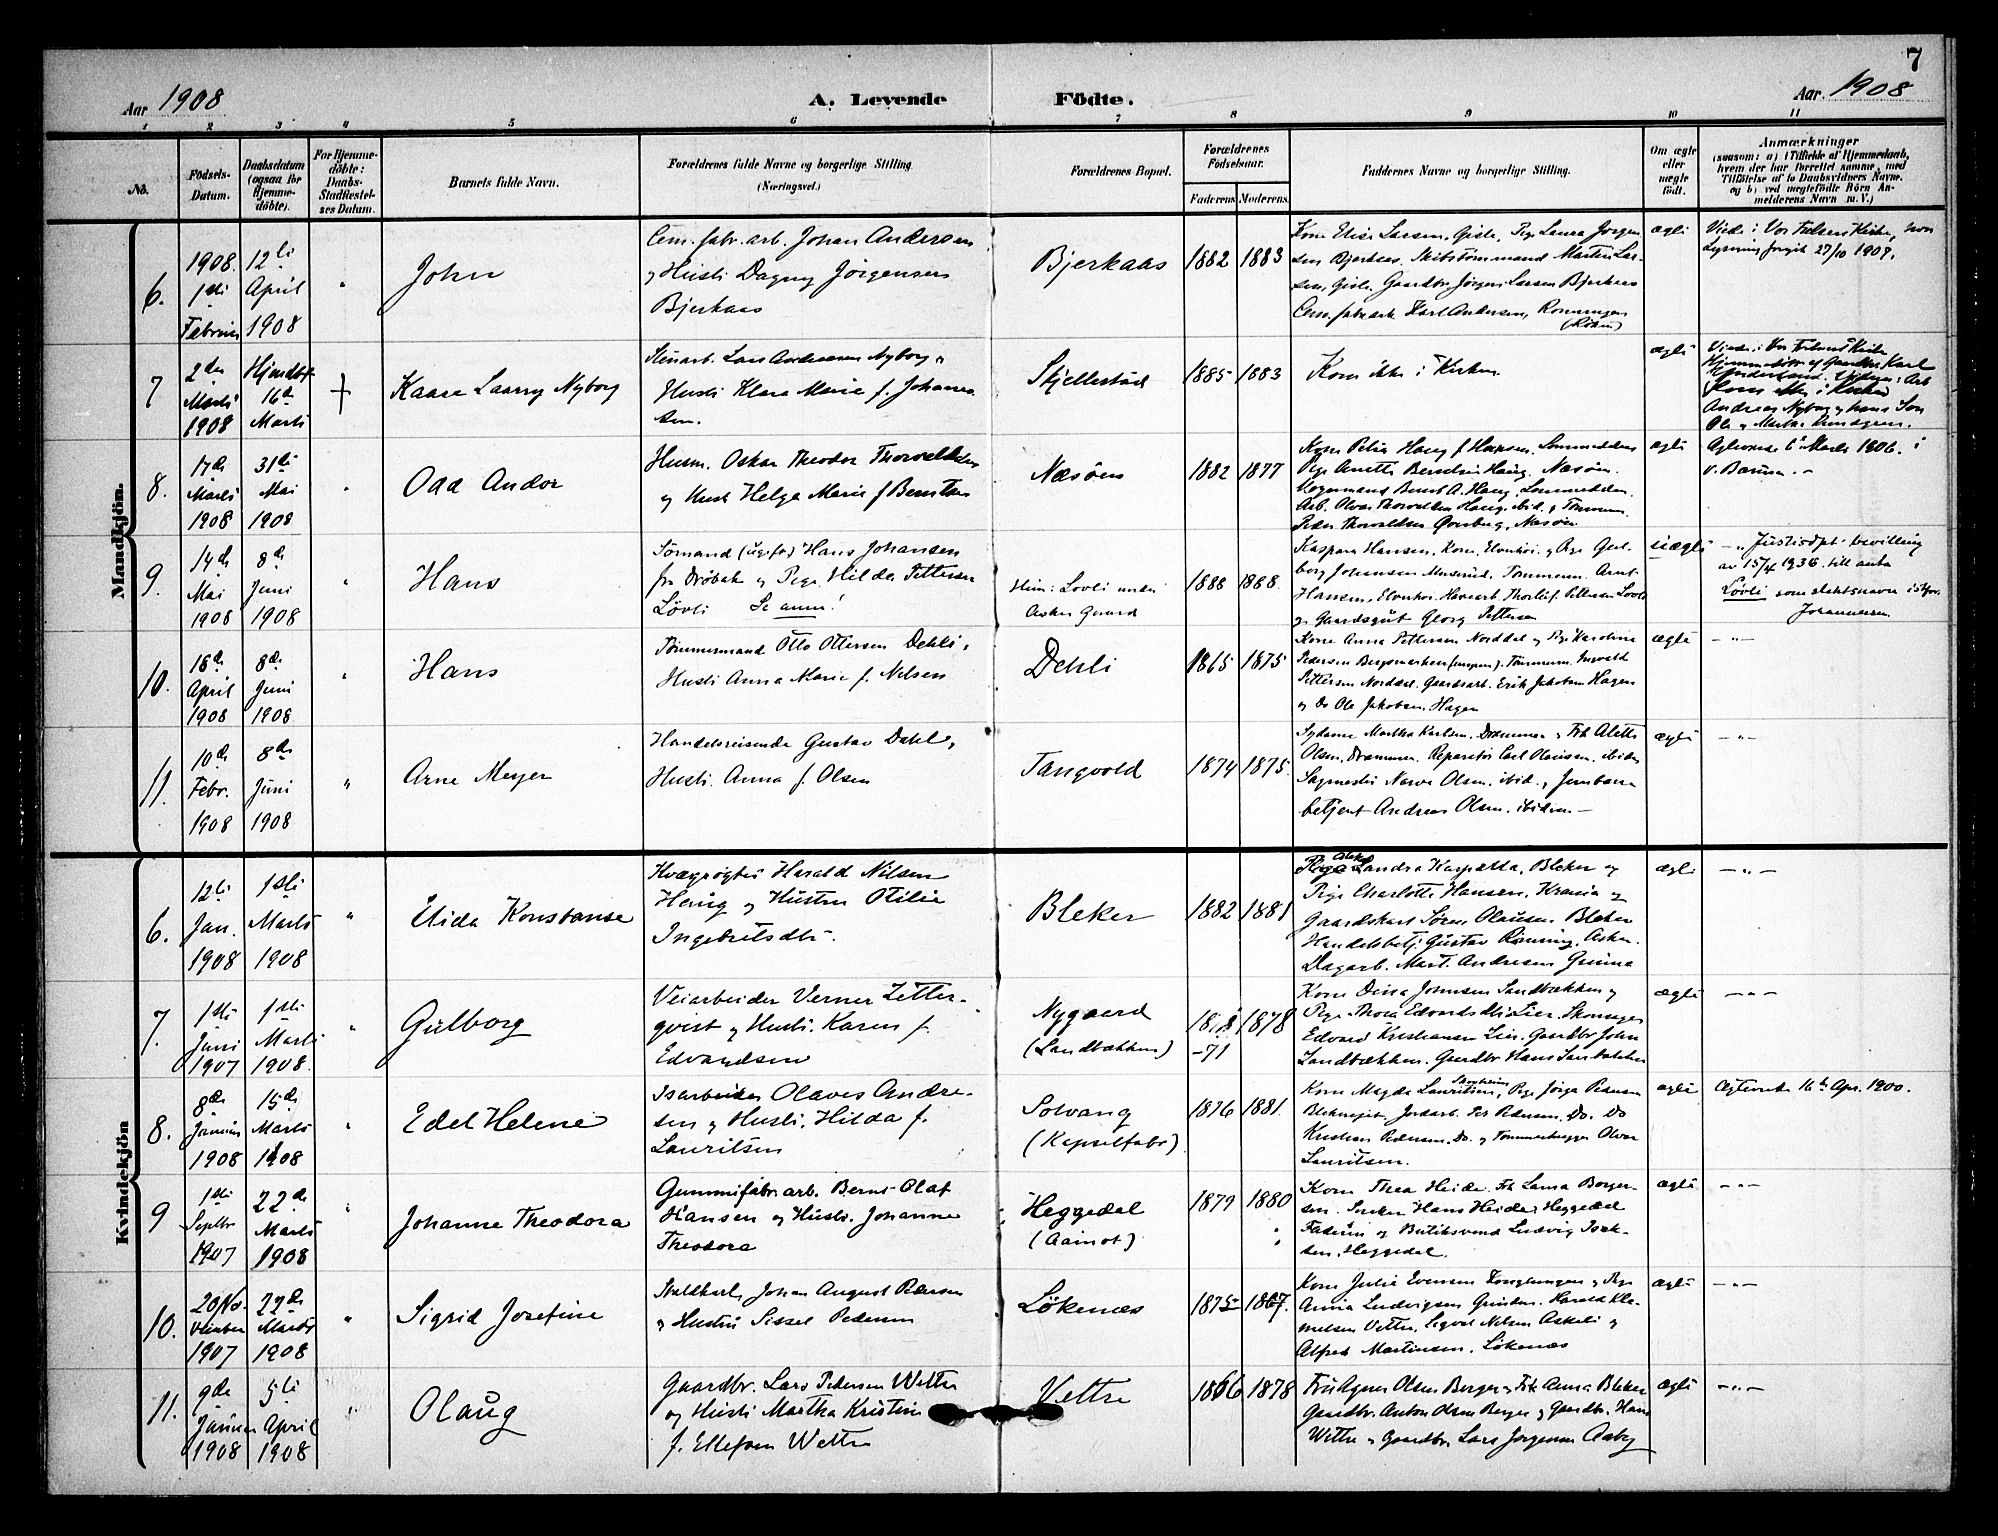 7
Aar 1908
A. Levende Födte.
Aar. 1908
1 2 3 4 5 6 7 8 9 10 11
No.
Födsels-
Datum.
Daabsdatum
(ogsaa for
Hjemme-
döbte).
For Hjemme-
döbte:
Daabs-
Stadfæstel-
ses Datum.
Barnets fulde Navn.
Forældrenes fulde Navne og borgerlige Stilling.
(Næringsvei.)
Forældrenes Bopæl.
Forældrenes
Födselsaar.
Faderens
Moderens.
Faddernes Navne og borgerlige Stilling.
Om ægte
eller
uægte
födt.
Anmærkninger
(saasom: a) i Tilfælde af Hjemmedaab,
hvem der har forrettet samme, med
Tilföielse af to Daabsvidners Navne.
og b) ved uægtefödte Börn An-
melderens Navn m. V.)
Mandkjön.
6.
1908.
1sti
Februar
12ti
April
1908
"
John
Cem. fabr. arb. Johan Andersen
og Hustr. Dagny Jörgensen
Bjerkaas
Bjerkaas
1882
1883
Kone Elise Larsen, Gisle, Pige Laura Jörgen
sen Bjerkaas. Skibstömmand Martin Lar-
sen, Gisle. Gaardbr. Jörgen Larsen Bjerkaas
Cem. fabr. arb. Karl Andersen, Ronningen
ægte
Viede i Vor Frelsers Kirke, hvor
Lysning foregik 27/10 1907.
7
2den
Marts
1908
Hjemdöbt
16de
Marts
+
Kaare Laurry Nyborg
Stenarb. Lars Andreasen Nyborg og
Hustr. Klara Marie f. Johanes
sen.
Skjellestad
1885
1883
Kom ikke i Kirken
ægte
Viede i Vor Frelsers Kirke
Andreas Nyborg og hans Sön
8.
17de
Marts
1908
31te
Mai
1908
Odd Andor
Husm. Oskar Theodor Thorvaldsen
og Hust. Helga Marie f Berntsen
Næsöen
1882
1877
Kone Petra Haug f Hansen, Lommedalen
Pige Anette Berntsen Haug. Næsöen.
Bernt A. Haug Lommedalen.
Arb. Olvar Thorvaldsen Haug. ibid. og Tömmerm.
Peder Thorvaldsen Næsöen
ægte
Ægteviede 6 Marts 1906. i
V. Bærum. -
9.
14de
Mai
1908
8de
Juni
1908
"
Hans
Sömand (ugift) Hans Johansen
fra Dröbak og Pige Hilda Pettersen
Lövli Se anm!
Hun: Lovli under
Asker Gaard
1888
1888
Kaspara Hansen, Kone, og Pige
borg Johansen Tömmerm.
Hansen, Thorleif Pettersen Lövli
og Gaardsgut Georg Pettersen
uægte
-"- Justisdpt. bevilling
av 15/4 1936 till anta
Lövli som slektsnavn istfor
Johannesen
10.
18de
April
1908
8de
Juni
1908
Hans
Tömmermand Otto Ottersen Dehli,
Hustr. Anna Marie f. Nilsen
Dehli
1865
1875
Kone Anna Pettersen Norddal og Pige Karoline
Pedersen Tömmerm. Ingvald
Pettersen Norddal. Gaardarb. Erik Jakobsen Hagen
og Do Ole Jakobsen Hagen
ægte
-"-
11.
10de
Febr.
1908
8de
Juni
1908
"
Arne Meyer
Handelsreisende Gustav Dahl,
Hustr. Anna f. Olsen
Tangvold
1874
1875.
Sydame Martha Karlsen, Drammen og Frk Alette
Olsen, Drammen. Reparatör Carl Olaussen. ibidem
Sagmester Narve Olsen, ibid. og Jernbane
betjent Andreas Olsen. ibidem -
ægte
-"-
Kvindekjön
6.
12te
Jan.
1908
1ste
Marts
1908
"
Elida Konstanse
Kvægrögter Harald Nilsen
Haug og Hustru Otilie
Ingebritsdtr.
Bleker
1882
1881
Pige Sandra Kaspetta, Bleker og
Pige Charlotte Hansen. Krania og
Gaardskarl Sören Olausen. Bleker
Handelsbetj. Gustav Rönning, Asker.
Dagarb. Mart. Andresen
ægte
-"-
7.
1ste
Juni
1907
1ste
Marts
1908.
"
Gulborg
Veiarbeider Verner Zetter-
qvist og Hustr. Karen f.
Edvardsen
Nygaard
(Sandbækken)
-71
1878
Kone Dina Johnsen Sandbækken og
Pige Thora Edvardsdtr Lier. Skomager
Edvard Kristiansen Lier. Gaardbr John
Sandbækken. Gaardbr Hans Sandbækken
ægte
-"-
8.
8de
Januar
1908
15de
Marts
1908
Edel Helene
Isarbeider Olaves Andre-
sen og Hustr. Hilda f.
Lauritsen
Solvang
(Kapselfabr.)
1876
1881.
Kone Magda Lauritsen, Pige Jörga Pedersen
Jordarb. Per Pedersen. Do. Do
Kristian Pedersen. Do. og Tömmerhugger Olvar
Lauritsen.
ægte
Ægteviet 16de Apr. 1900.
9
1ste
Septbr
1907
22de
Marts
1908
Johanne Theodora
Gummifabr. arb. Bernt Olaf
Hansen og Hustr. Johanne
Theodora
Heggedal
(Aamot)
1879
1880
Kone Thea Heide. Frk Laura Borger-
sen. Snekker Hans Heide Heggedal
Faderen og Butiksvend Ludvig Isak-
sen. Heggedal.
ægte
-"-
10.
20 No-
vember
1907
22de
Marts
1908
"
Sigrid Josefine
Staldkarl Johan August Pedersen
og Hustru Sissel Pedersen
Lökenæs
1875
1867.
Kone Julie Evensen og Pige
Anna Ludvigsen Harald Kle-
metsen Vettre, Sigvd Nilsen Askeli og
Alfred Martinsen. Lökenæs
ægte
-"-
11.
9de
Januar
1908
5te
April
1908
"
Olaug
Gaardbr. Lars Pedersen Wettre
og Hustr. Martha Kristine
f. Ellefsen Wettre
Vettre
1866
1878
Fru Agnes Olsen Berger og Frk Anna Bleker
Gaardbr. Anton Olsen Berger og Gaardbr. Hans
Wettre og Gaardbr. Lars Jörgensen Aaby
ægte
-"-